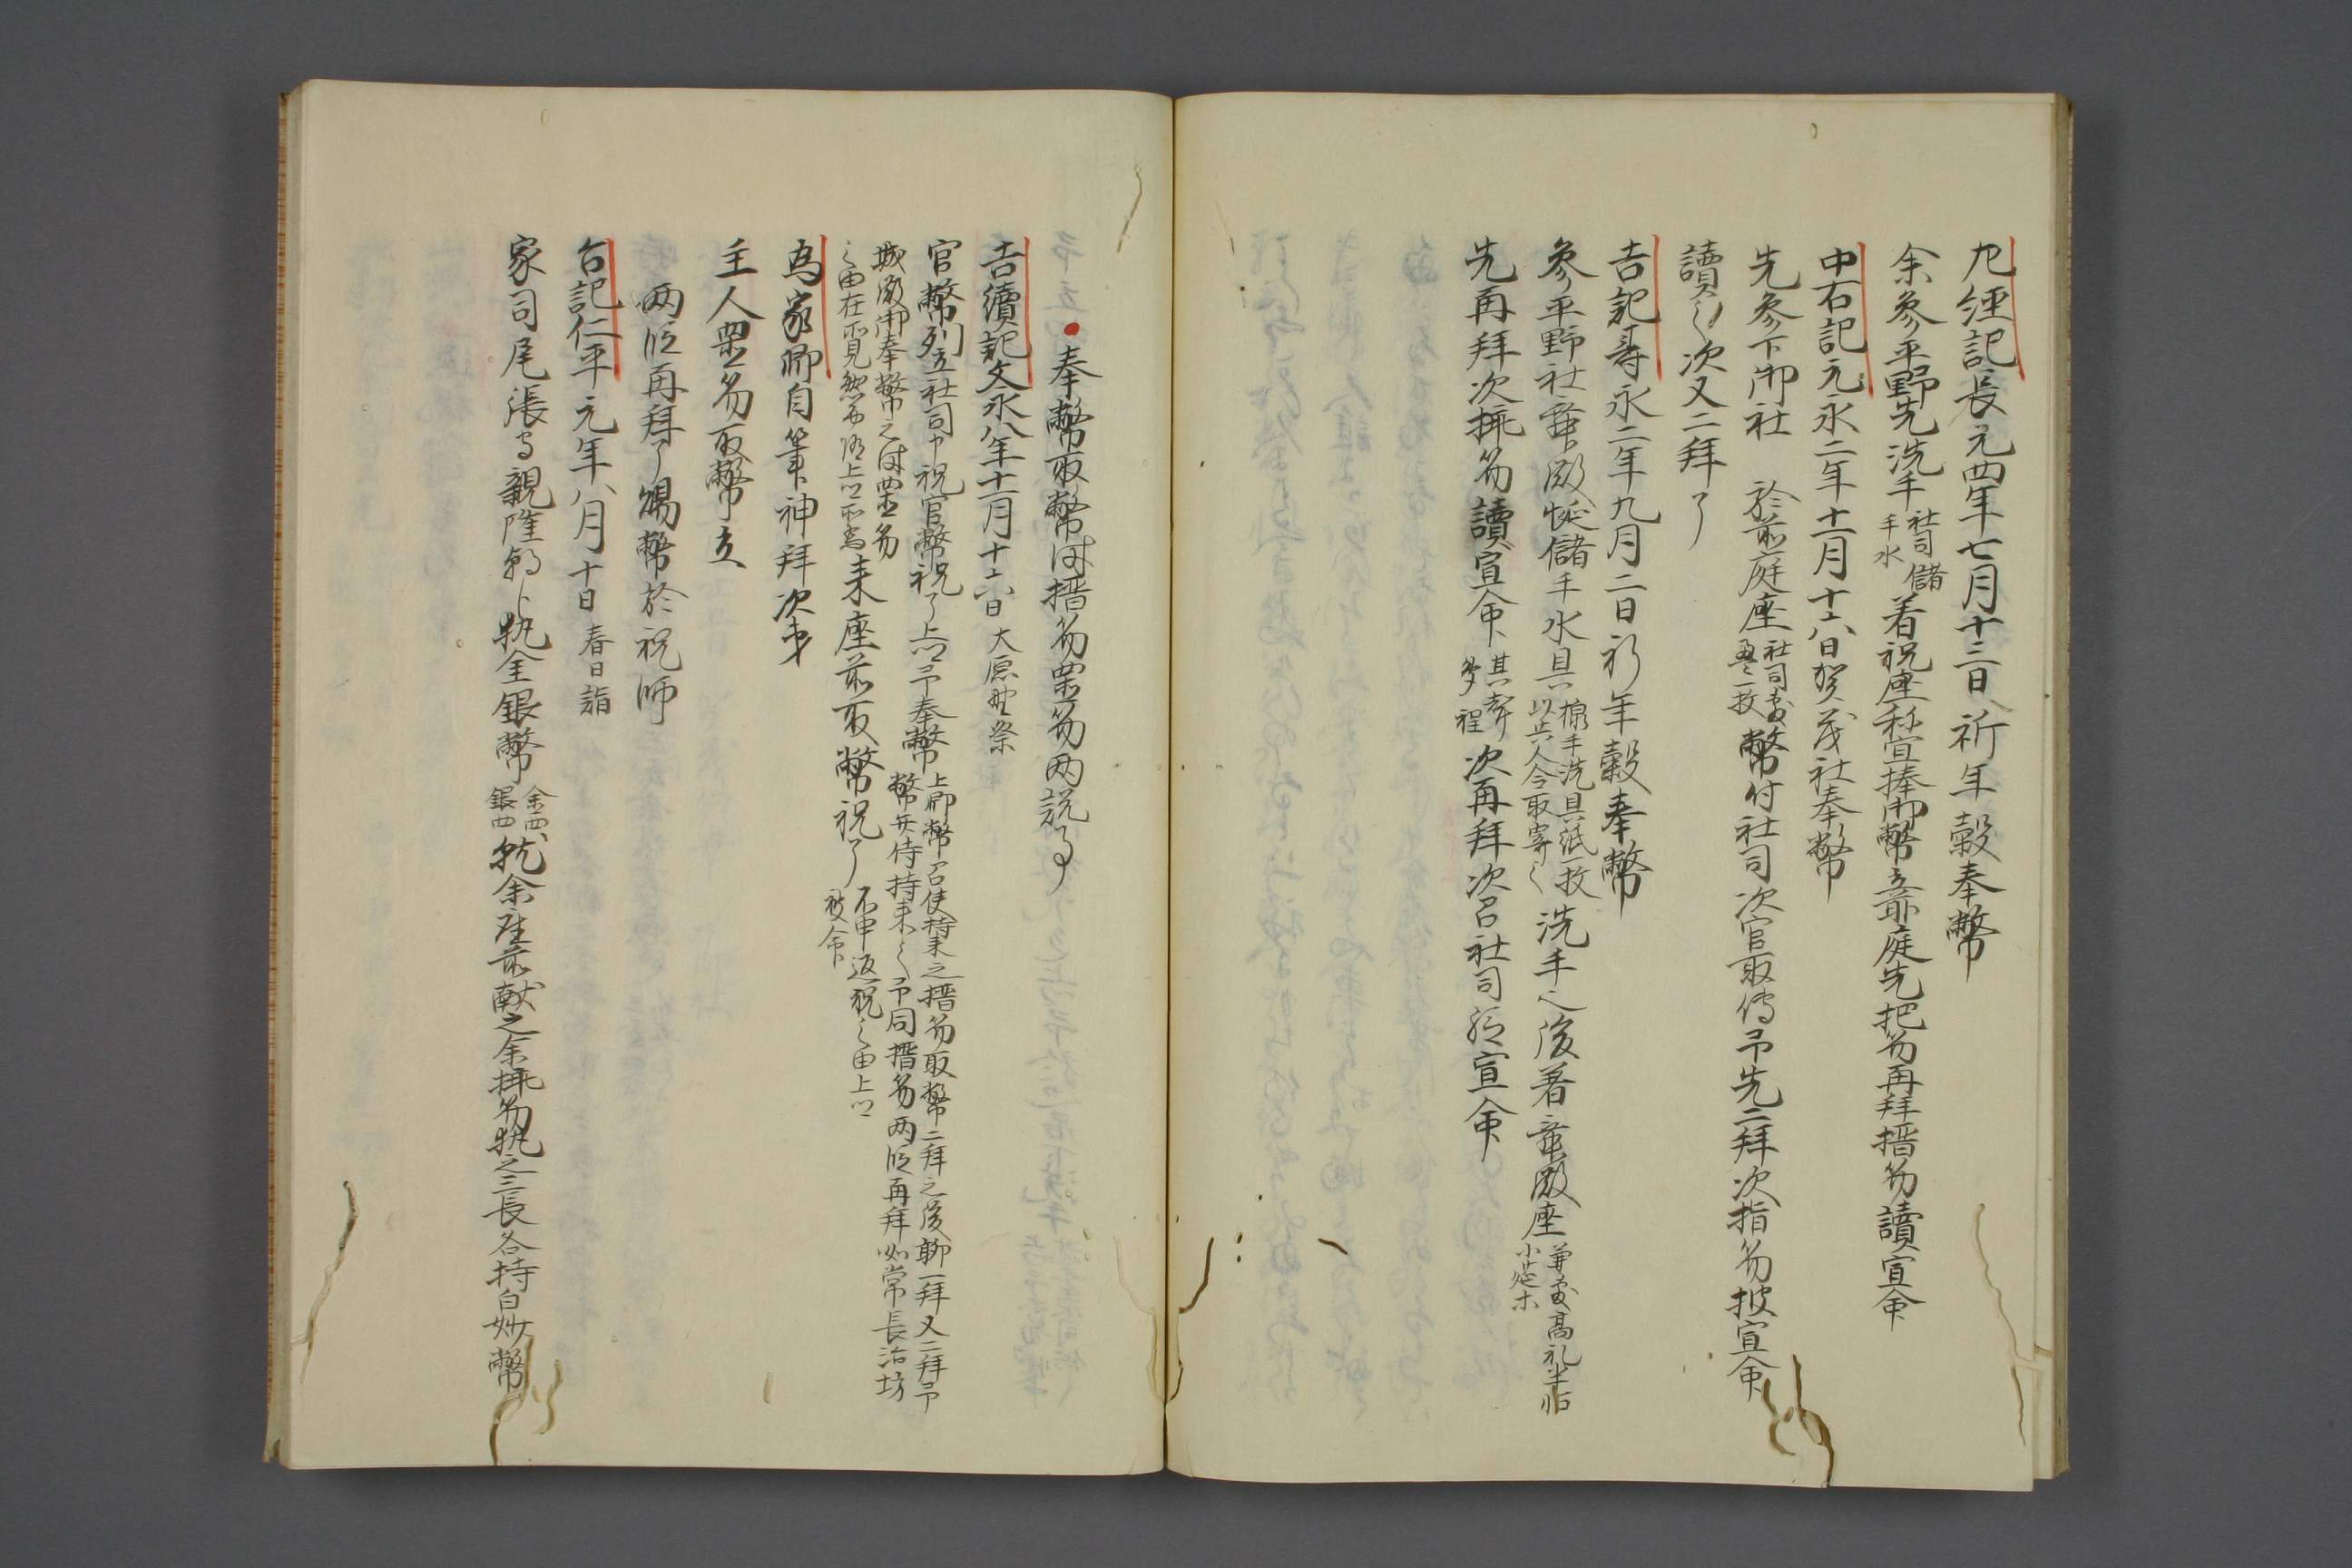 左経記長元四年七月十三日祈年穀奉幣
余参平野先洗手社司儲手水着祝座祢宜捧御幣立前庭先把笏再拜搢笏讀宣命
中右記元永二年十一月十六日賀茂社奉幣
先参下御社 於前庭座社司敷畳一枚幣付社司次官取傳予先二拜次指笏披宣命
讀之次又二拜了
吉記壽永二年九月二日祈年穀奉幣
参平野社舞殿儲手水具楾手洗具紙一枚以共人令取寄之洗手之後着舞殿座兼敷高礼半帖小莚木
先再拜次挿笏讀宣命其聲多程次再拜次召社司給宣命
奉幣取幣時搢笏置笏両説事
吉續記文永八年十一月十六日大原野祭
官幣列立社司申祝官幣祝了上卿予奉幣上卿幣召使持来之搢笏取幣二拜之後聊一拜又二拜予
幣共侍持来之予同搢笏両段再拜如常長治坊
城殿御奉幣之時置笏
之由在所見然而後上卿所為来座前取幣祝了不申返祝之由上卿被命
為家卿自筆神拜次第
主人置笏取幣立
両段再拜了賜幣於祝師
台記仁平元年八月十日春日詣
家司尾張守親隆朝臣執金銀幣金四銀四就余座前献之余挿笏執之三長各持白妙幣